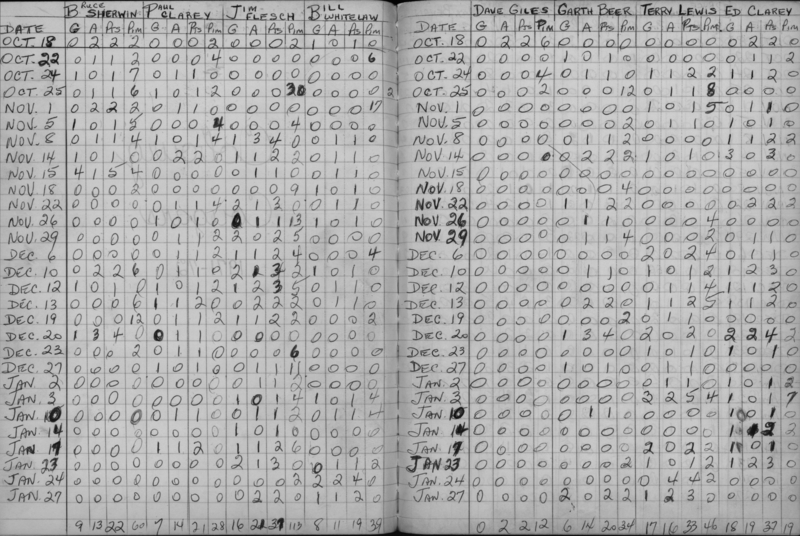 BRUCE SHERWIN PAUL CLAREY JIM FLESCH BILL WHITELAW
DATE G A Pts Pim G A Pts Pim G A Pts Pim G A Pts Pim
OCT. 18 0 2 2 2 0 0 0 2 0 0 0 2 1 0 1 0
OCT. 22 0 1 1 2 0 0 0 4 0 0 0 0 0 0 0 6
OCT. 24 1 0 1 7 0 1 1 0 0 0 0 0 0 0 0 0
OCT. 25 0 1 1 6 1 0 1 2 0 0 0 30 0 0 0 2
NOV. 1 0 2 2 2 0 1 1 0 0 0 0 0 0 0 0 17
NOV. 5 1 0 1 5 0 0 0 4 0 0 0 4 0 0 0 0
NOV. 8 0 1 1 4 1 0 1 4 1 3 4 0 0 1 1 0
NOV. 14 1 0 1 0 0 2 2 0 1 1 2 2 0 1 1 0
NOV. 15 4 1 5 4 0 0 0 0 0 1 1 0 0 1 1 0
NOV. 18 0 0 0 2 0 0 0 0 0 0 0 9 1 0 1 0
NOV. 22 0 0 0 0 0 1 1 4 2 1 3 2 0 0 0 0
NOV. 26 0 0 0 0 1 0 1 0 0 1 1 13 1 0 1 0
NOV. 29 0 0 0 0 0 1 1 2 2 0 2 5 0 0 0 0
DEC. 6 0 0 0 0 0 1 1 2 1 1 2 4 0 0 0 4
DEC. 10 0 2 2 6 0 1 1 0 2 1 3 2 1 0 1 0
DEC. 12 1 0 1 0 1 0 1 2 1 2 3 5 0 1 1 0
DEC. 13 0 0 0 6 1 1 2 0 0 2 2 2 0 1 1 0
DEC. 19 0 0 0 12 0 1 1 2 1 1 2 2 0 0 0 2
DEC. 20 1 3 4 0 0 1 1 0 1 1 2 0 0 0 0 0
DEC. 23 0 0 0 2 0 1 1 0 0 0 0 6 0 0 0 0
DEC. 27 0 0 0 0 1 0 1 0 1 1 0 0 0 0
JAN. 2 0 0 0 0 0 0 0 0 0 1 1 2 0 0 0 0
JAN. 3 0 0 0 0 0 0 0 0 1 0 1 4 1 0 1 4
JAN. 10 0 0 0 0 0 1 1 0 0 1 1 2 0 1 1 4
JAN. 14 0 0 0 0 0 0 0 0 1 0 1 0 0 0 0 0
JAN. 17 0 0 0 0 1 1 2 0 0 1 1 2 6 0 0 0 0
JAN. 23 0 0 0 0 0 0 0 0 2 1 3 0 0 1 1 2
JAN. 24 0 0 0 0 0 0 0 0 0 0 0 2 2 2 4 0
JAN. 27 0 0 0 0 0 0 0 0 0 2 2 0 1 1 2 0
9 13 22 60 7 14 21 28 16 21 37 113 8 11 19 39
DAVE GILES GARTH BEER TERRY LEWIS ED CLAREY
DATE G A Pts Pim G A Pts Pim G A Pts Pim G A Pts Pim
OCT. 18 0 2 2 6 0 0 0 0 0 0 0 0 0 2 2 0
OCT. 22 0 0 0 0 1 0 1 0 0 0 0 0 0 1 1 2
OCT. 24 0 0 0 4 0 1 1 0 1 1 2 2 1 1 2 0
OCT. 25 0 0 0 2 0 0 0 12 0 1 1 8 0 0 0 0
NOV. 1 0 0 0 0 0 0 0 0 1 0 1 5 0 1 1 0
NOV. 5 0 0 0 0 0 0 0 2 0 1 1 0 1 0 1 0
NOV. 8 0 0 0 0 0 1 1 2 0 0 0 0 1 1 2 2
NOV. 14 0 0 0 0 0 2 2 2 1 0 1 0 3 0 3 0
NOV. 15 0 0 0 0 0 0 0 0 0 0 0 0 0 0 0 0
NOV. 18 0 0 0 0 0 0 0 4 0 0 0 0 0 0 0 0
NOV. 22 0 0 0 0 1 1 2 2 0 0 0 0 0 2 2 2
NOV. 26 0 0 0 0 0 1 1 0 0 0 0 4 0 0 0 0
NOV. 29 0 0 0 0 0 1 1 4 0 0 0 2 0 1 1 0
DEC. 6 0 0 0 0 0 0 0 0 2 0 2 4 0 1 1 0
DEC. 10 0 0 0 0 0 1 1 0 1 0 1 2 1 2 3 0
DEC. 12 0 0 0 0 0 0 0 0 0 1 1 4 1 1 2 0
DEC. 13 0 0 0 0 0 2 2 0 1 1 2 5 1 1 2 0
DEC. 19 0 0 0 0 0 0 0 2 0 1 1 0 0 0 0 0
DEC. 20 0 0 0 0 1 3 4 0 2 0 2 0 2 2 4 2
DEC. 23 0 0 0 0 0 0 0 0 1 0 1 0 1 0 1 0
DEC. 27 0 0 0 0 1 0 1 0 1 0 1 0 0 0 0 0
JAN. 2 0 0 0 0 0 0 0 0 0 1 1 0 1 0 1 2
JAN. 3 0 0 0 0 0 0 0 0 2 2 5 4 1 0 1 7
JAN. 10 0 0 0 0 0 1 1 0 0 0 0 0 1 0 1 0
JAN. 14 0 0 0 0 0 0 0 0 0 0 0 0 1 2 2
JAN. 17 0 0 0 0 0 0 0 0 2 0 2 2 1 0 1 0
JAN 23 0 0 0 0 0 0 0 2 1 0 1 2 1 2 3 0
JAN. 24 0 0 0 0 0 0 0 0 0 4 4 2 0 0 0 0
JAN. 27 0 0 0 0 2 0 2 2 1 2 3 0 0 0 0 0
0 2 2 12 6 14 20 24 17 16 33 46 18 19 37 19